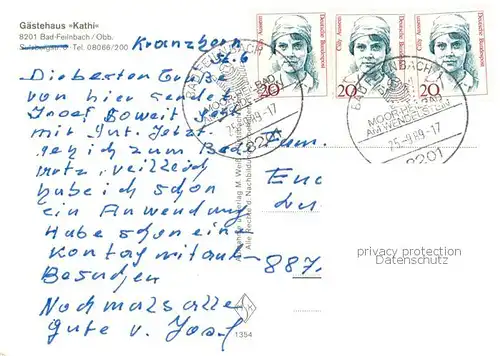 Gästehaus »Kathi«
8201 Bad-Feilnbach / Obb.
Sulzbergstr. 6 · Tel. 08066/200
Kranzhorn
Str. 6
Die besten Grüße
von hier sendet
Josef Soweit geht
mir Gut. Jetzt
geh ich zum Bade
habe ich schon
ein Anwendung
Habe schon ein
Kontag mit aut
Besuchen
Nochmals alle
gute v. Josef
Fam.
887.
Cilly Aussem
Deutsche Bundespost
20
Cilly Aussem
Deutsche Bundespost
20
Cilly Aussem
Deutsche Bundespost
20
BAD FEILNBACH
MOORHEILBAD
AM WENDELSTEIN
25.-9.89-17
8201
BAD FEILNBACH
MOORHEILBAD
AM WENDELSTEIN
25.-9.89-17
8201
Alle Rechte d. Nachbildung
1354
privacy protection
Datenschutz